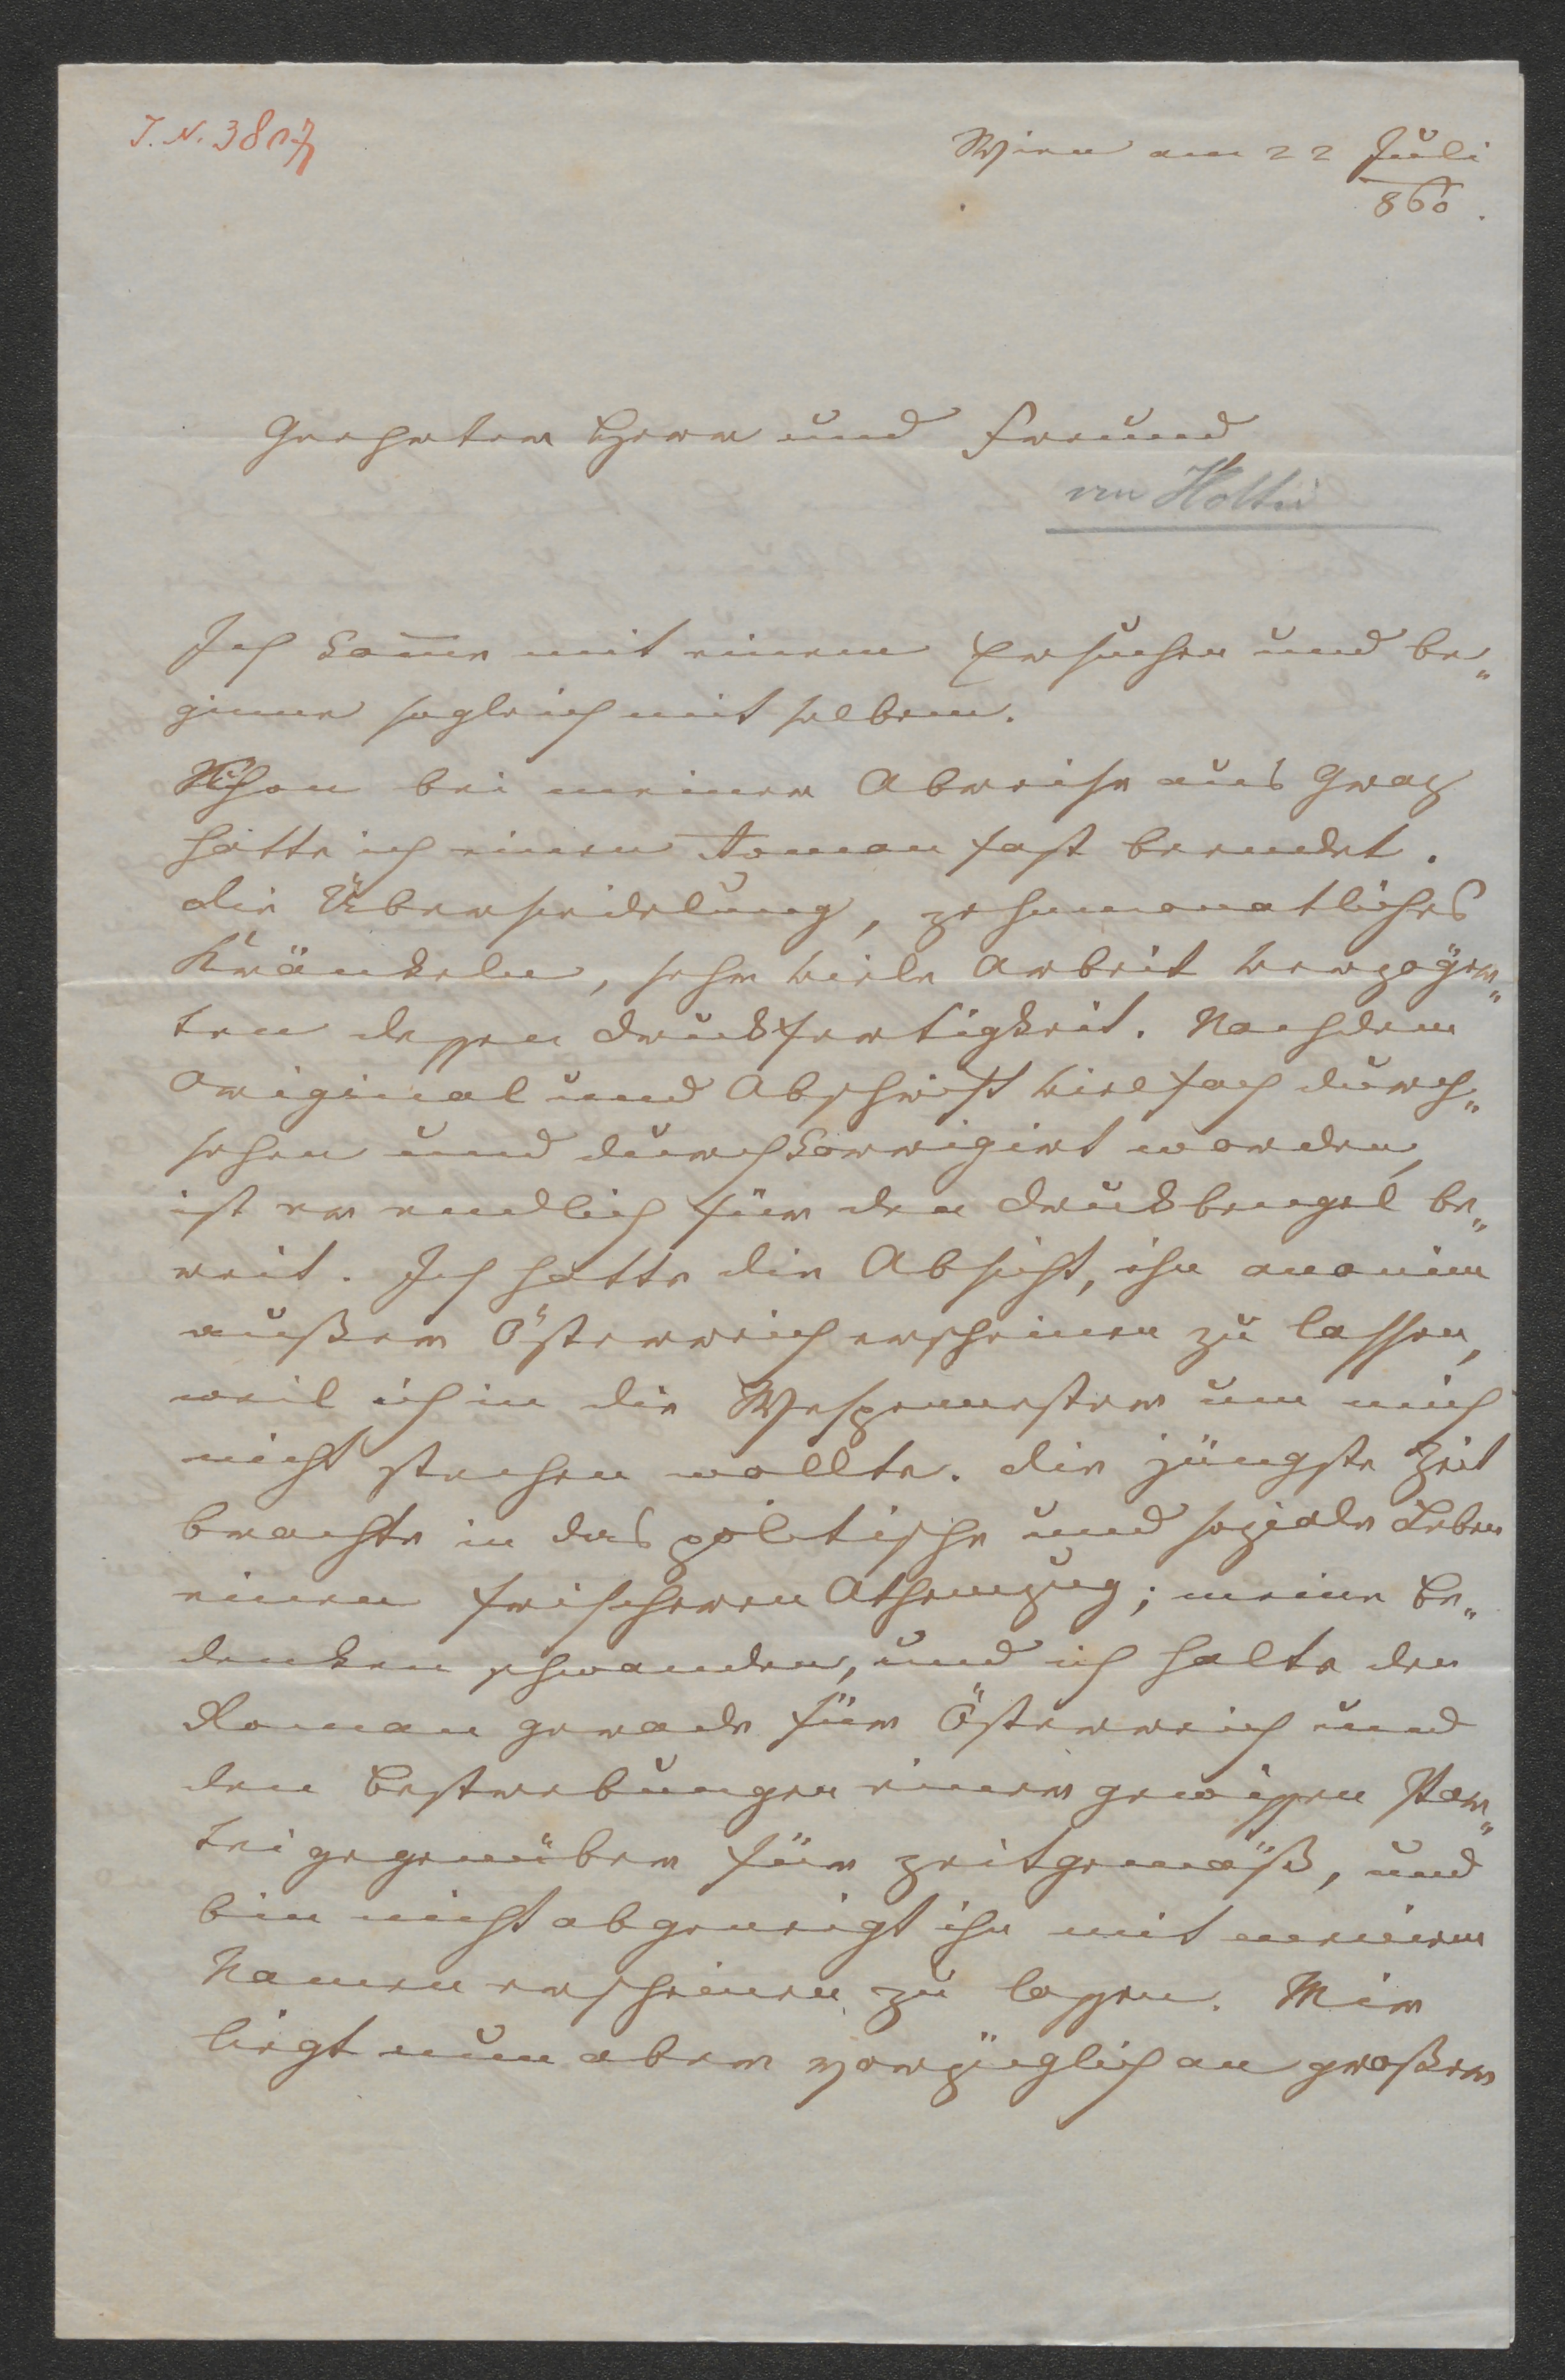 J. N. 3807
Wien am 22 Juli
860.
Geehrter Herr und Freund
von Holtei
Ich kom̅e mit einem Ersuchen und be„
ginne sogleich mit selbem.
Schon bei meiner Abreise aus Graz
hatte ich einen Roman fast beendet.
die Übersiedelung, zehnmonatliches
Kränkeln, sehr viele Arbeit verzöger„
ten dessen Druckfertigkeit. Nachdem
Original und Abschrift vielfach durch„
sehen und durchkorrigirt worden,
ist er endlich für den Druckbengel be„
reit. Ich hatte die Absicht, ihn anonim
außer Österreich erscheinen zu lassen,
weil ich in die Wespennester um mich
nicht stechen wollte. die jüngste Zeit
brachte in das politische und soziale Leben
einen frischeren Athemzug; meine Be„
denken schwanden, und ich halte den
Roman gerade für Österreich und
den Bestrebungen einer gewissen Par„
tei gegenüber für zeitgemäß, und
bin nicht abgeneigt ihn mit meinem
Namen erscheinen zu lassen. Mir
liegt nun aber vorzüglich an großer